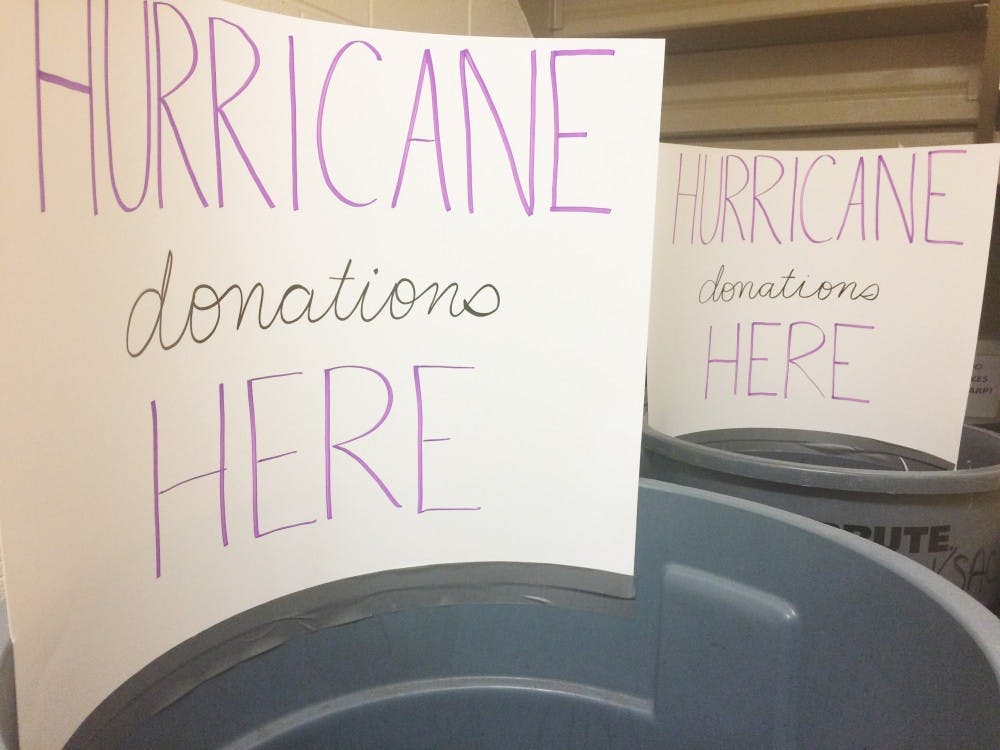 HURRICANE
donations
HERE
HURRICANE
donations
HERE
BRUTE